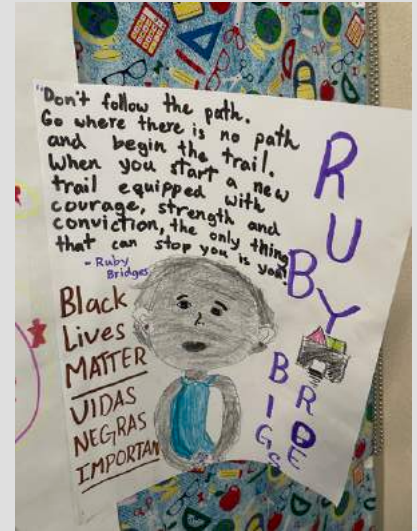 "Don't follow the path.
Go where there is no path
and begin the trail.
When you start a new
trail equipped with
courage, strength and
conviction, the only thing
that can stop you is you!"
- Ruby
Bridges
Black
Lives
MATTER
VIDAS
NEGRAS
IMPORTAN
RUBY
BRIDGES